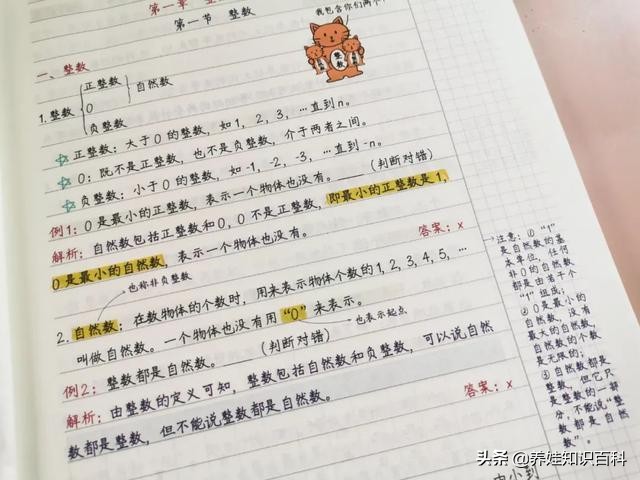 第一章
第一节 整数
我包含你们两个!
整数
一、整数
1.整数
正整数
0
自然数
负整数
正整数：大于0的整数，如1，2，3，…直到n。
0：既不是正整数，也不是负整数，介于两者之间。
负整数：小于0的整数，如-1，-2，-3，…直到-n。
例1：0是最小的正整数，表示一个物体也没有。____(判断对错)
解析：自然数包括正整数和0，0不是正整数，即最小的正整数是1，
0是最小的自然数，表示一个物体也没有。 答案：×
也称非负整数
2.自然数：在数物体的个数时，用来表示物体个数的1，2，3，4，5，…
叫做自然数。一个物体也没有用“0”来表示。
也表示起点
例2：整数都是自然数。____(判断对错)
解析：由整数的定义可知，整数包括自然数和负整数，可以说自然
数都是整数，但不能说整数都是自然数。 答案：×
注意：①“1”
是自然数的基
本单位，任何
非0的自然数
都是由若干个
“1”组成；
②0是最小的
自然数，没有
最大的自然数，
自然数的个数
是无限的；
③自然数都是
整数，但它只
是整数的一部
分，不能说“整
数都是自然
数”。
由小到
头条 @养娃知识百科